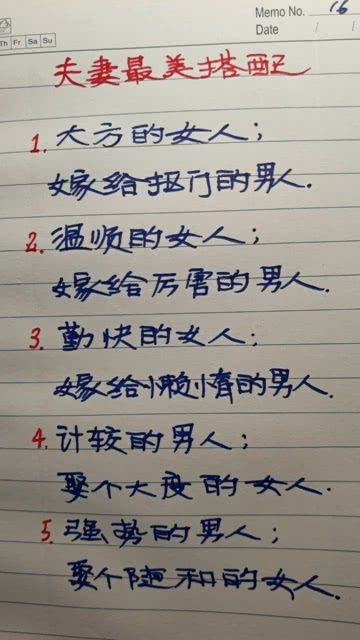 Memo No. 16
Th Fr Sa Su
Date / /
夫妻最美搭配
1. 大方的女人；
嫁给抠门的男人.
2. 温顺的女人；
嫁给厉害的男人.
3. 勤快的女人；
嫁给懒惰的男人.
4. 计较的男人；
娶个大度的女人.
5. 强势的男人；
娶个随和的女人.